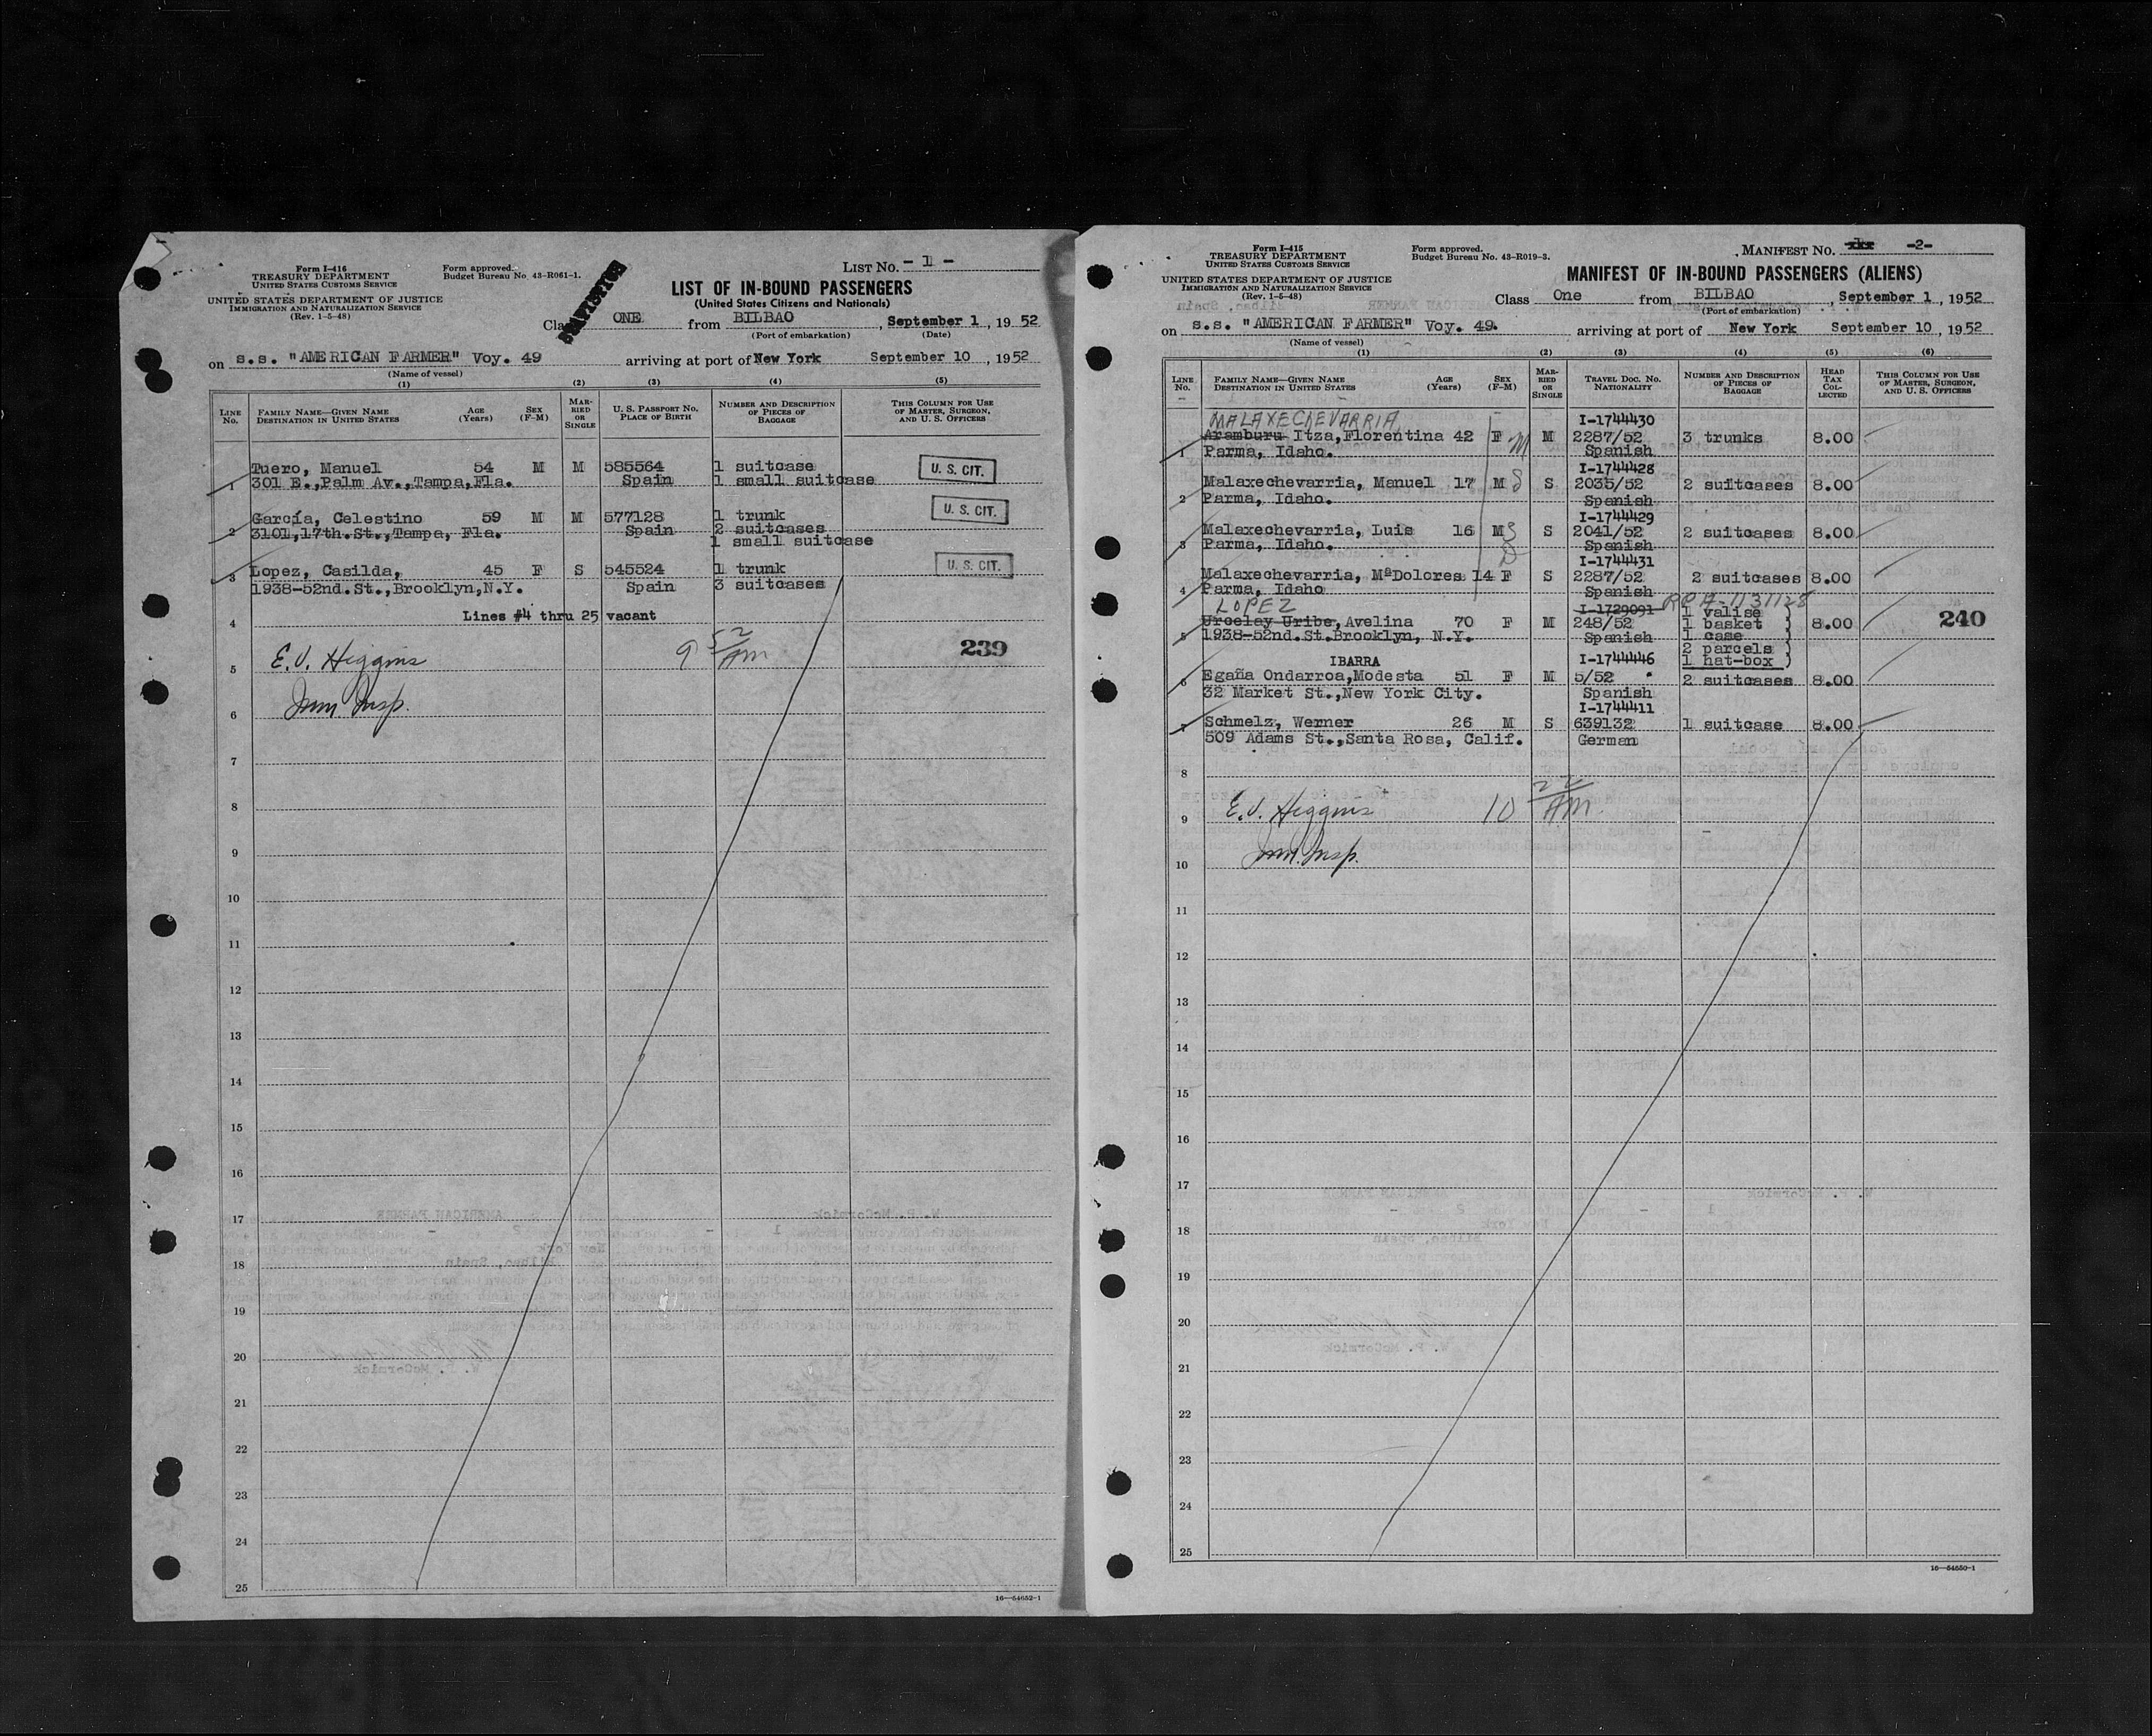 Form I-416
TREASURY DEPARTMENT
UNITED STATES CUSTOMS SERVICE
UNITED STATES DEPARTMENT OF JUSTICE
IMMIGRATION AND NATURALIZATION SERVICE
(Rev. 1-5-48)
Form approved.
Budget Bureau No. 43-R061-1.
LIST No. - 1 -
LIST OF IN-BOUND PASSENGERS
(United States Citizens and Nationals)
Cla ONE from BILBAO, September 1, 1952
(Port of embarkation) (Date)
on s.s. "AMERICAN FARMER" Voy. 49 arriving at port of New York September 10, 1952
(Name of vessel)
(1) (2) (3) (4) (5)
LINE No. FAMILY NAME—GIVEN NAME DESTINATION IN UNITED STATES AGE (Years) SEX (F-M) MARRIED OR SINGLE U. S. PASSPORT No. PLACE OF BIRTH NUMBER AND DESCRIPTION OF PIECES OF BAGGAGE THIS COLUMN FOR USE OF MASTER, SURGEON, AND U. S. OFFICERS
Tuero, Manuel 54 M M 585564 1 suitcase U. S. CIT.
1 301 E.,Palm Av.,Tampa,Fla. Spain 1 small suitcase
García, Celestino 59 M M 577128 1 trunk U. S. CIT.
2 3101,17th.St.,Tampa, Fla. Spain 2 suitcases
1 small suitcase
Lopez, Casilda, 45 F S 545524 1 trunk U. S. CIT.
3 1938-52nd.St.,Brooklyn,N.Y. Spain 3 suitcases
Lines #4 thru 25 vacant
4
E.J. Higgins 9 52 AM 239
5
Imm. Insp.
6
7
8
9
10
11
12
13
14
15
16
17
18
19
20
21
22
23
24
25
16—54652-1
Form I-415
TREASURY DEPARTMENT
UNITED STATES CUSTOMS SERVICE
UNITED STATES DEPARTMENT OF JUSTICE
IMMIGRATION AND NATURALIZATION SERVICE
(Rev. 1-5-48)
Form approved.
Budget Bureau No. 43-R019-3.
MANIFEST No. -2-
MANIFEST OF IN-BOUND PASSENGERS (ALIENS)
Class One from BILBAO, September 1, 1952
(Port of embarkation)
on s.s. "AMERICAN FARMER" Voy. 49. arriving at port of New York September 10, 1952
(Name of vessel)
(1) (2) (3) (4) (5) (6)
LINE No. FAMILY NAME—GIVEN NAME DESTINATION IN UNITED STATES AGE (Years) SEX (F-M) MARRIED OR SINGLE TRAVEL DOC. NO. NATIONALITY NUMBER AND DESCRIPTION OF PIECES OF BAGGAGE HEAD TAX COLLECTED THIS COLUMN FOR USE OF MASTER, SURGEON, AND U. S. OFFICERS
MALAXECHEVARRIA I-1744430
Aramburu Itza,Florentina 42 F M M 2287/52 3 trunks 8.00
1 Parma, Idaho. Spanish
I-1744428
Malaxechevarria, Manuel 17 M S S 2035/52 2 suitcases 8.00
2 Parma, Idaho. Spanish
I-1744429
Malaxechevarria, Luis 16 M S S 2041/52 2 suitcases 8.00
3 Parma, Idaho. Spanish
D I-1744431
Malaxechevarria, MªDolores 14 F S 2287/52 2 suitcases 8.00
4 Parma, Idaho Spanish
LOPEZ I-1729091 1 valise
Urcelay Uribe, Avelina 70 F M 248/52 1 basket 8.00 240
5 1938-52nd.St.Brooklyn, N.Y. Spanish 1 case
2 parcels
IBARRA I-1744446 1 hat-box
Egaña Ondarroa,Modesta 51 F M 5/52 2 suitcases 8.00
6 32 Market St.,New York City. Spanish
I-1744411
7 Schmelz, Werner 26 M S 639132 1 suitcase 8.00
509 Adams St.,Santa Rosa, Calif. German
8
E.J. Higgins 10 22 AM
9
Imm. Insp.
10
11
12
13
14
15
16
17
18
19
20
21
22
23
24
25
16—54650-1